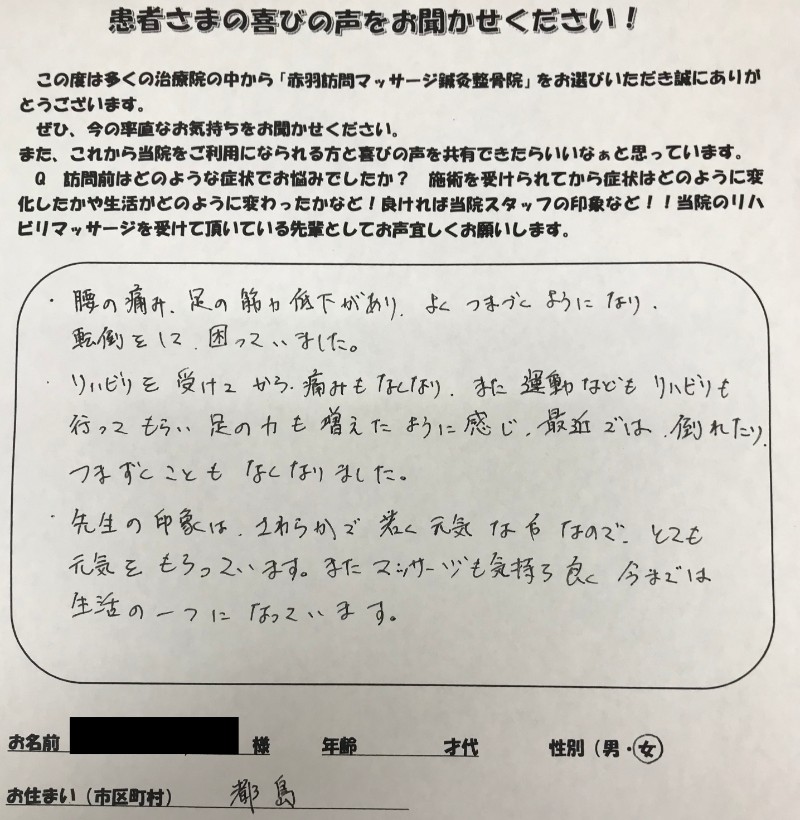 患者さまの喜びの声をお聞かせください！
この度は多くの治療院の中から「赤羽訪問マッサージ鍼灸整骨院」をお選びいただき誠にありが
とうございます。
ぜひ、今の率直なお気持ちをお聞かせください。
また、これから当院をご利用になられる方と喜びの声を共有できたらいいなぁと思っています。
Q　訪問前はどのような症状でお悩みでしたか？　施術を受けられてから症状はどのように変
化したかや生活がどのように変わったかなど！良ければ当院スタッフの印象など！！当院のリハ
ビリマッサージを受けて頂いている先輩としてお声宜しくお願いします。
・腰の痛み、足の筋力低下があり、よくつまづくようになり、
転倒をして、困っていました。
・リハビリを受けてから、痛みもなくなり、また運動などもリハビリも
行ってもらい足の力も増えたように感じ、最近では、倒れたり、
つまずくこともなくなりました。
・先生の印象は、さわらかで若く元気な方なので、とても
元気をもらっています。またマッサージも気持ち良く今までは
生活の一つになっています。
お名前　様　年齢　才代　性別（男・女）
お住まい（市区町村）　都島